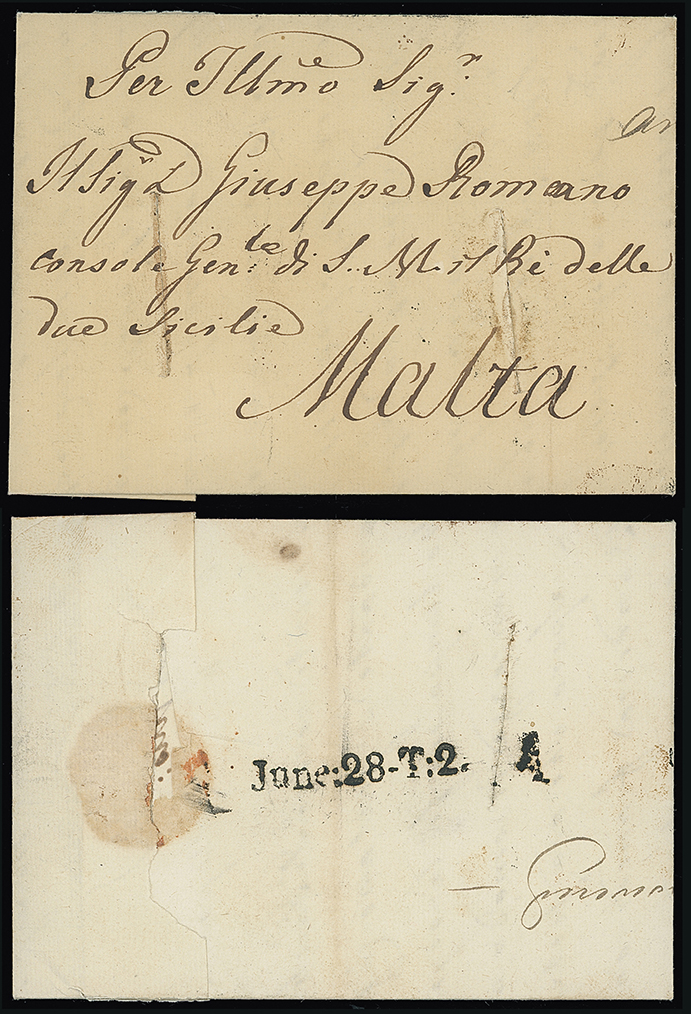 Per Illmo Sig.r
Il Sig.r D Giuseppe Romano
console Gen.le di S. M. il Rè delle
due Sicilie
Malta
June:28-T:2. A